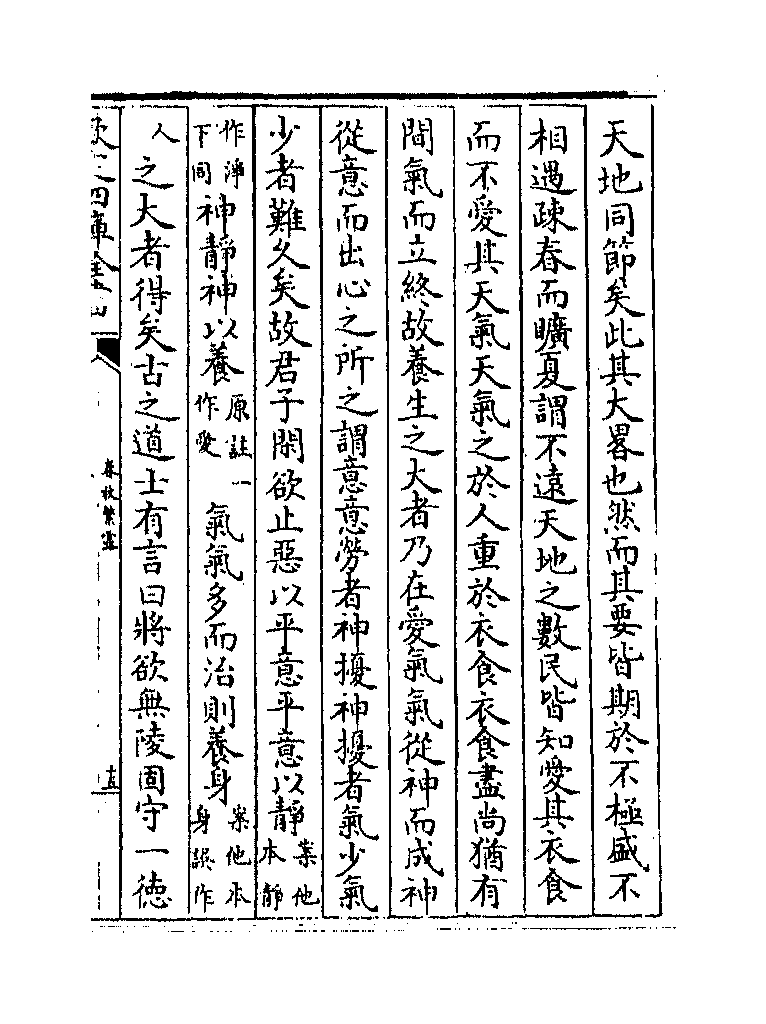 天地同節矣此其大畧也然而其要皆期於不極盛不
相遇疎春而曠夏謂不遠天地之數民皆知愛其衣食
而不愛其天氣天氣之於人重於衣食衣食盡尚猶有
間氣而立終故養生之大者乃在愛氣氣從神而成神
從意而出心之所之謂意意勞者神擾神擾者氣少氣
少者難久矣故君子閑欲止惡以平意平意以靜案他本靜
作淨下同神靜神以養原註一作愛氣氣多而治則養身案他本身誤作
人之大者得矣古之道士有言曰將欲無陵固守一德
欽定四庫全書
春秋繁露
十五